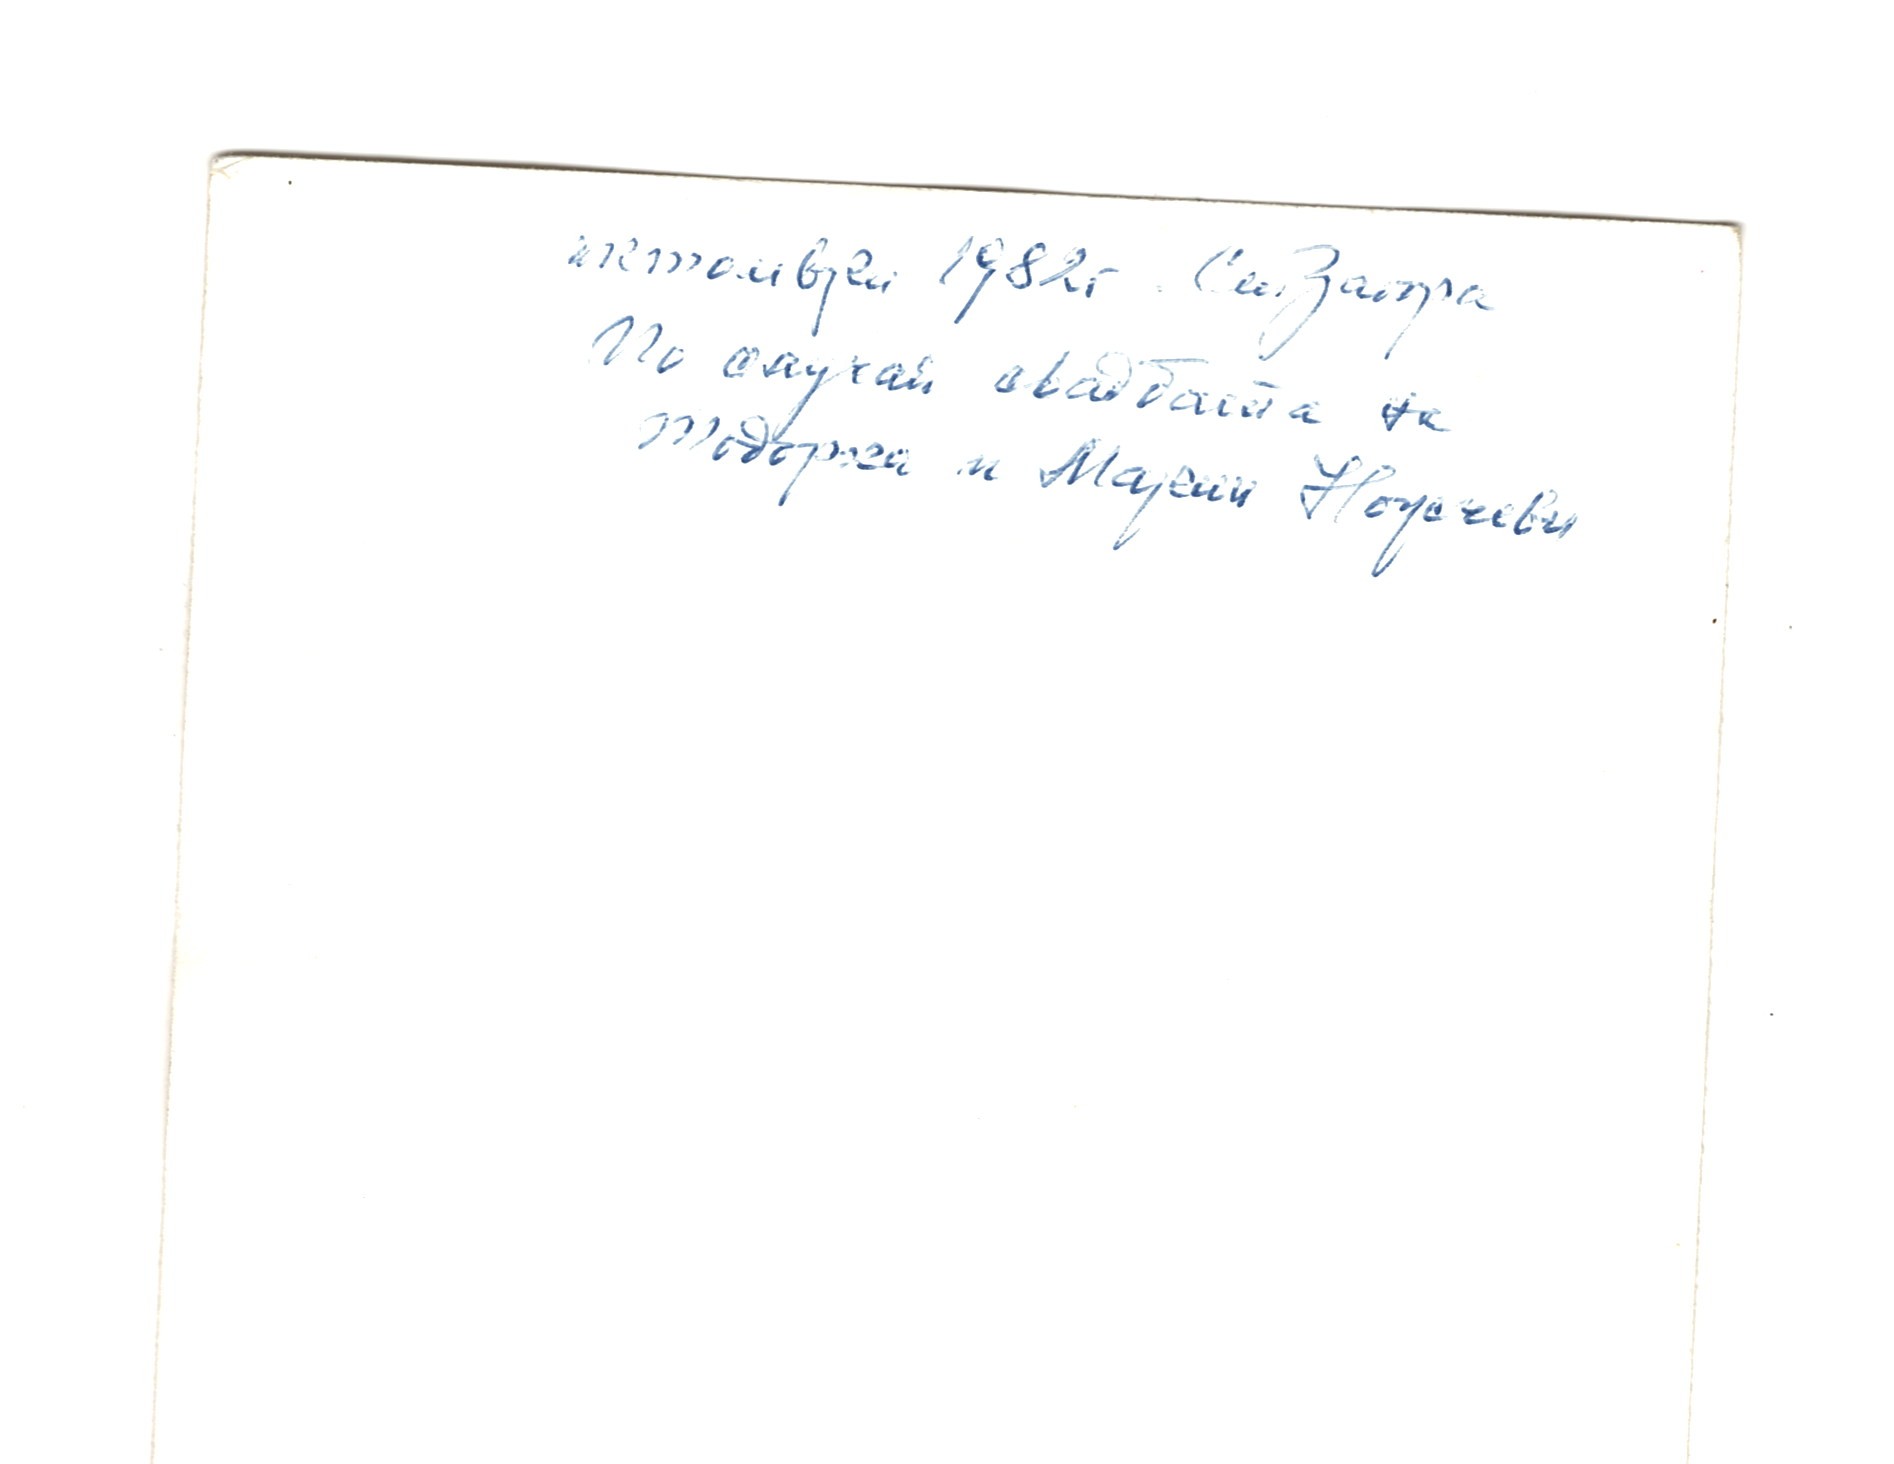 октомври 1982г. Ст. Загора
По случай сватбата на
Тодорка и Марин